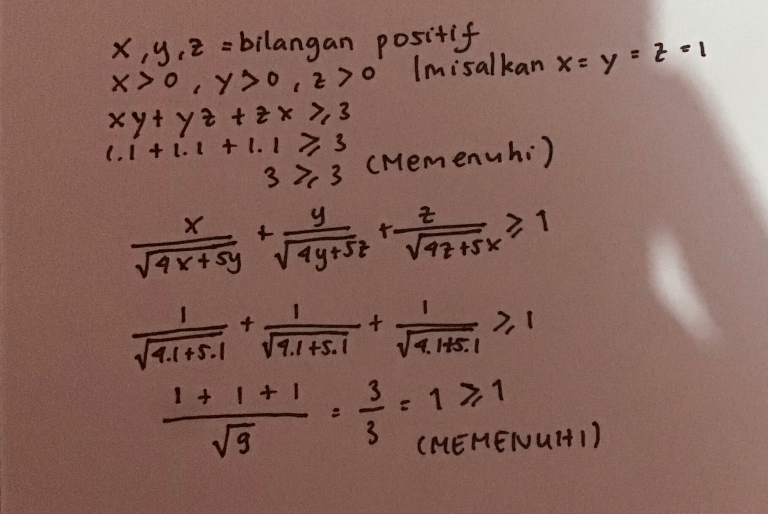 x, y, z = bilangan positif
x > 0, y > 0, z > 0 (misalkan x = y = z = 1
xy + yz + zx ≥ 3
1.1 + 1.1 + 1.1 ≥ 3
3 ≥ 3 (Memenuhi)
x/√(4x+5y) + y/√(4y+5z) + z/√(4z+5x) ≥ 1
1/√(4.1+5.1) + 1/√(4.1+5.1) + 1/√(4.1+5.1) ≥ 1
(1 + 1 + 1)/√9 = 3/3 = 1 ≥ 1
(MEMENUHI)